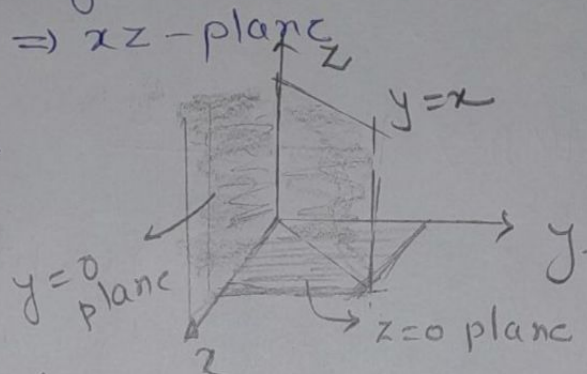 => xz - plane
z
y = x
y = 0
plane
y
z=0 plane